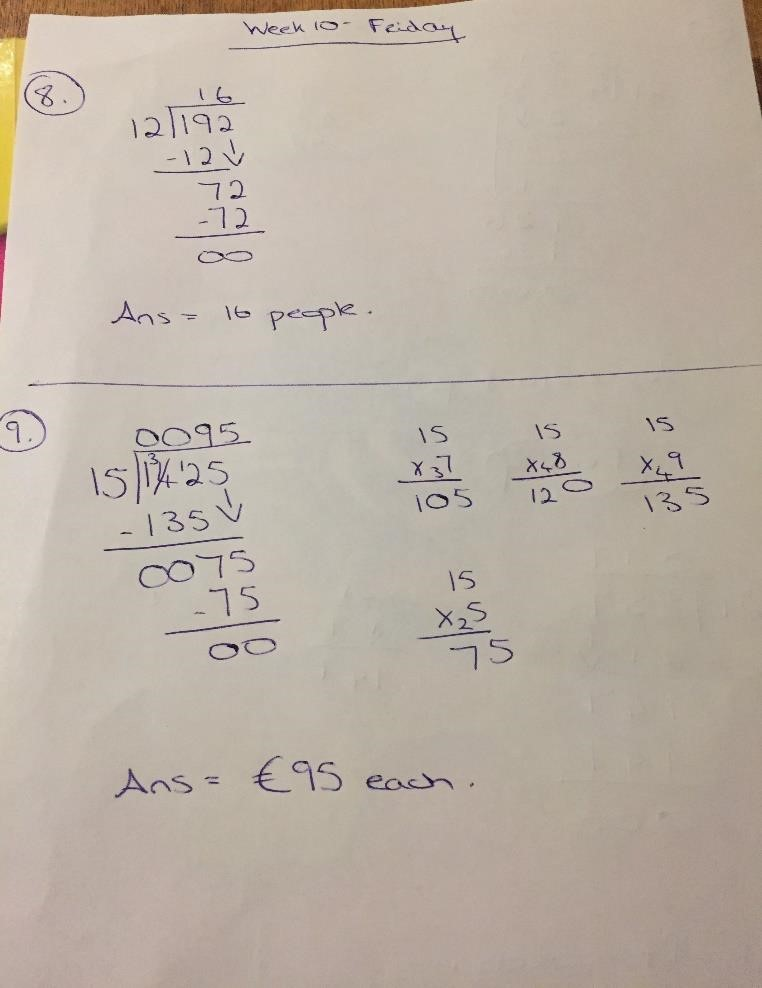 Week 10 - Friday
8.
16
12 192
-12↓
72
-72
00
Ans = 16 people.
9.
0095
15 1425
-135↓
0075
-75
00
15
x37
105
15
x48
120
15
x49
135
15
x25
75
Ans = €95 each.